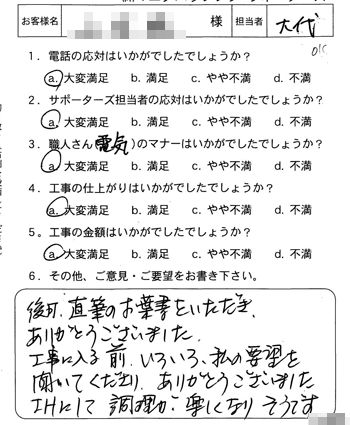 お客様名 様 担当者 大代
1．電話の応対はいかがでしたでしょうか？
a. 大変満足 b. 満足 c. やや不満 d. 不満
2．サポーターズ担当者の応対はいかがでしたでしょうか？
a. 大変満足 b. 満足 c. やや不満 d. 不満
3．職人さん(電気)のマナーはいかがでしたでしょうか？
a. 大変満足 b. 満足 c. やや不満 d. 不満
4．工事の仕上がりはいかがでしたでしょうか？
a. 大変満足 b. 満足 c. やや不満 d. 不満
5．工事の金額はいかがでしたでしょうか？
a. 大変満足 b. 満足 c. やや不満 d. 不満
6．その他、ご意見・ご要望をお書き下さい。
後日、直筆のお葉書をいただき、
ありがとうございました。
工事に入る前、いろいろ、私の要望を
聞いてくださり、ありがとうございました
IHにして 調理が 楽しくなりそうです